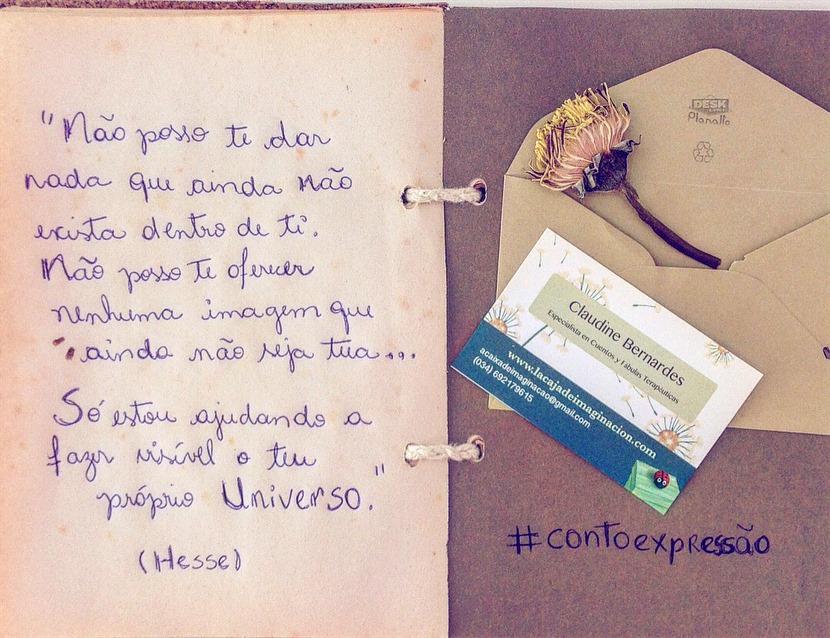 "Não posso te dar
nada que ainda não
exista dentro de ti.
Não posso te oferecer
nenhuma imagem que
ainda não seja tua...
Só estou ajudando a
fazer visível o teu
próprio Universo."
(Hesse)
DESK
Planalto
Claudine Bernardes
Especialista en Cuentos y Fábulas Terapéuticas
www.lacajadeimaginacion.com
acaixadeimaginacao@gmail.com
(034) 692179615
#contoexpressão